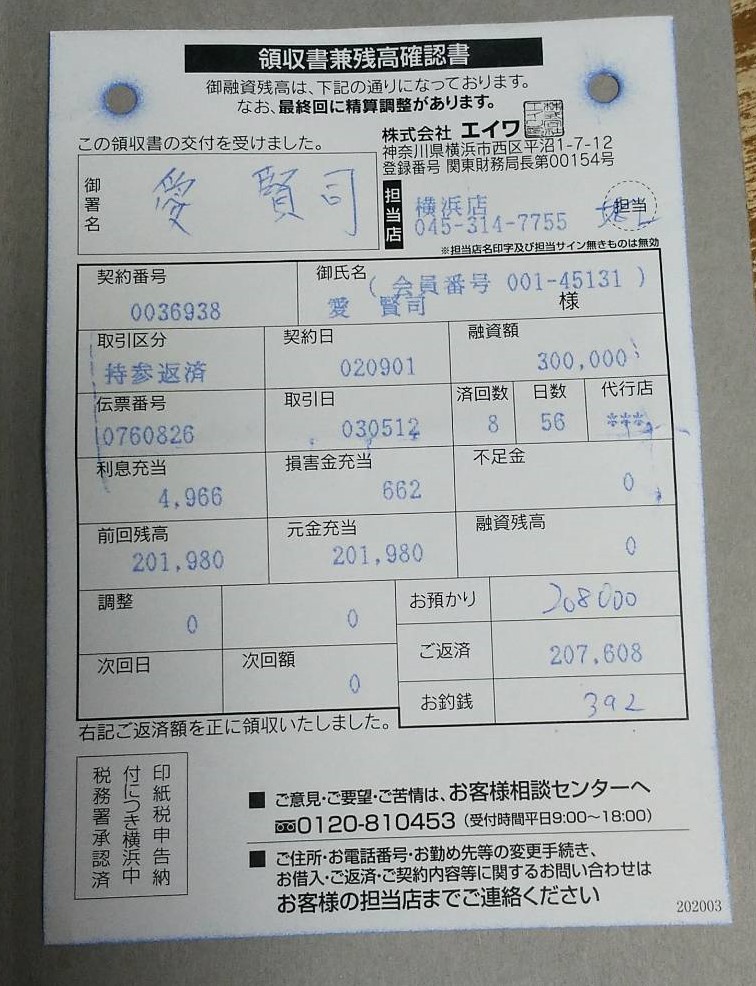 領収書兼残高確認書
御融資残高は、下記の通りになっております。
なお、最終回に精算調整があります。
この領収書の交付を受けました。
株式会社 エイワ
神奈川県横浜市西区平沼1-7-12
登録番号 関東財務局長第00154号
御署名
愛 賢司
担当店
横浜店
045-314-7755
担当
※担当店名印字及び担当サイン無きものは無効
契約番号
0036938
御氏名
(会員番号 001-45131)
愛 賢司 様
取引区分
持参返済
契約日
020901
融資額
300,000
伝票番号
0760826
取引日
030512
済回数
8
日数
56
代行店
***
利息充当
4,966
損害金充当
662
不足金
0
前回残高
201,980
元金充当
201,980
融資残高
0
調整
0
0
お預かり
208000
次回日
次回額
0
ご返済
207,608
お釣銭
392
右記ご返済額を正に領収いたしました。
印紙税申告納
付につき横浜中
税務署承認済
■ ご意見・ご要望・ご苦情は、お客様相談センターへ
0120-810453(受付時間平日9:00〜18:00)
■ ご住所・お電話番号・お勤め先等の変更手続き、
お借入・ご返済・ご契約内容等に関するお問い合わせは
お客様の担当店までご連絡ください
202003